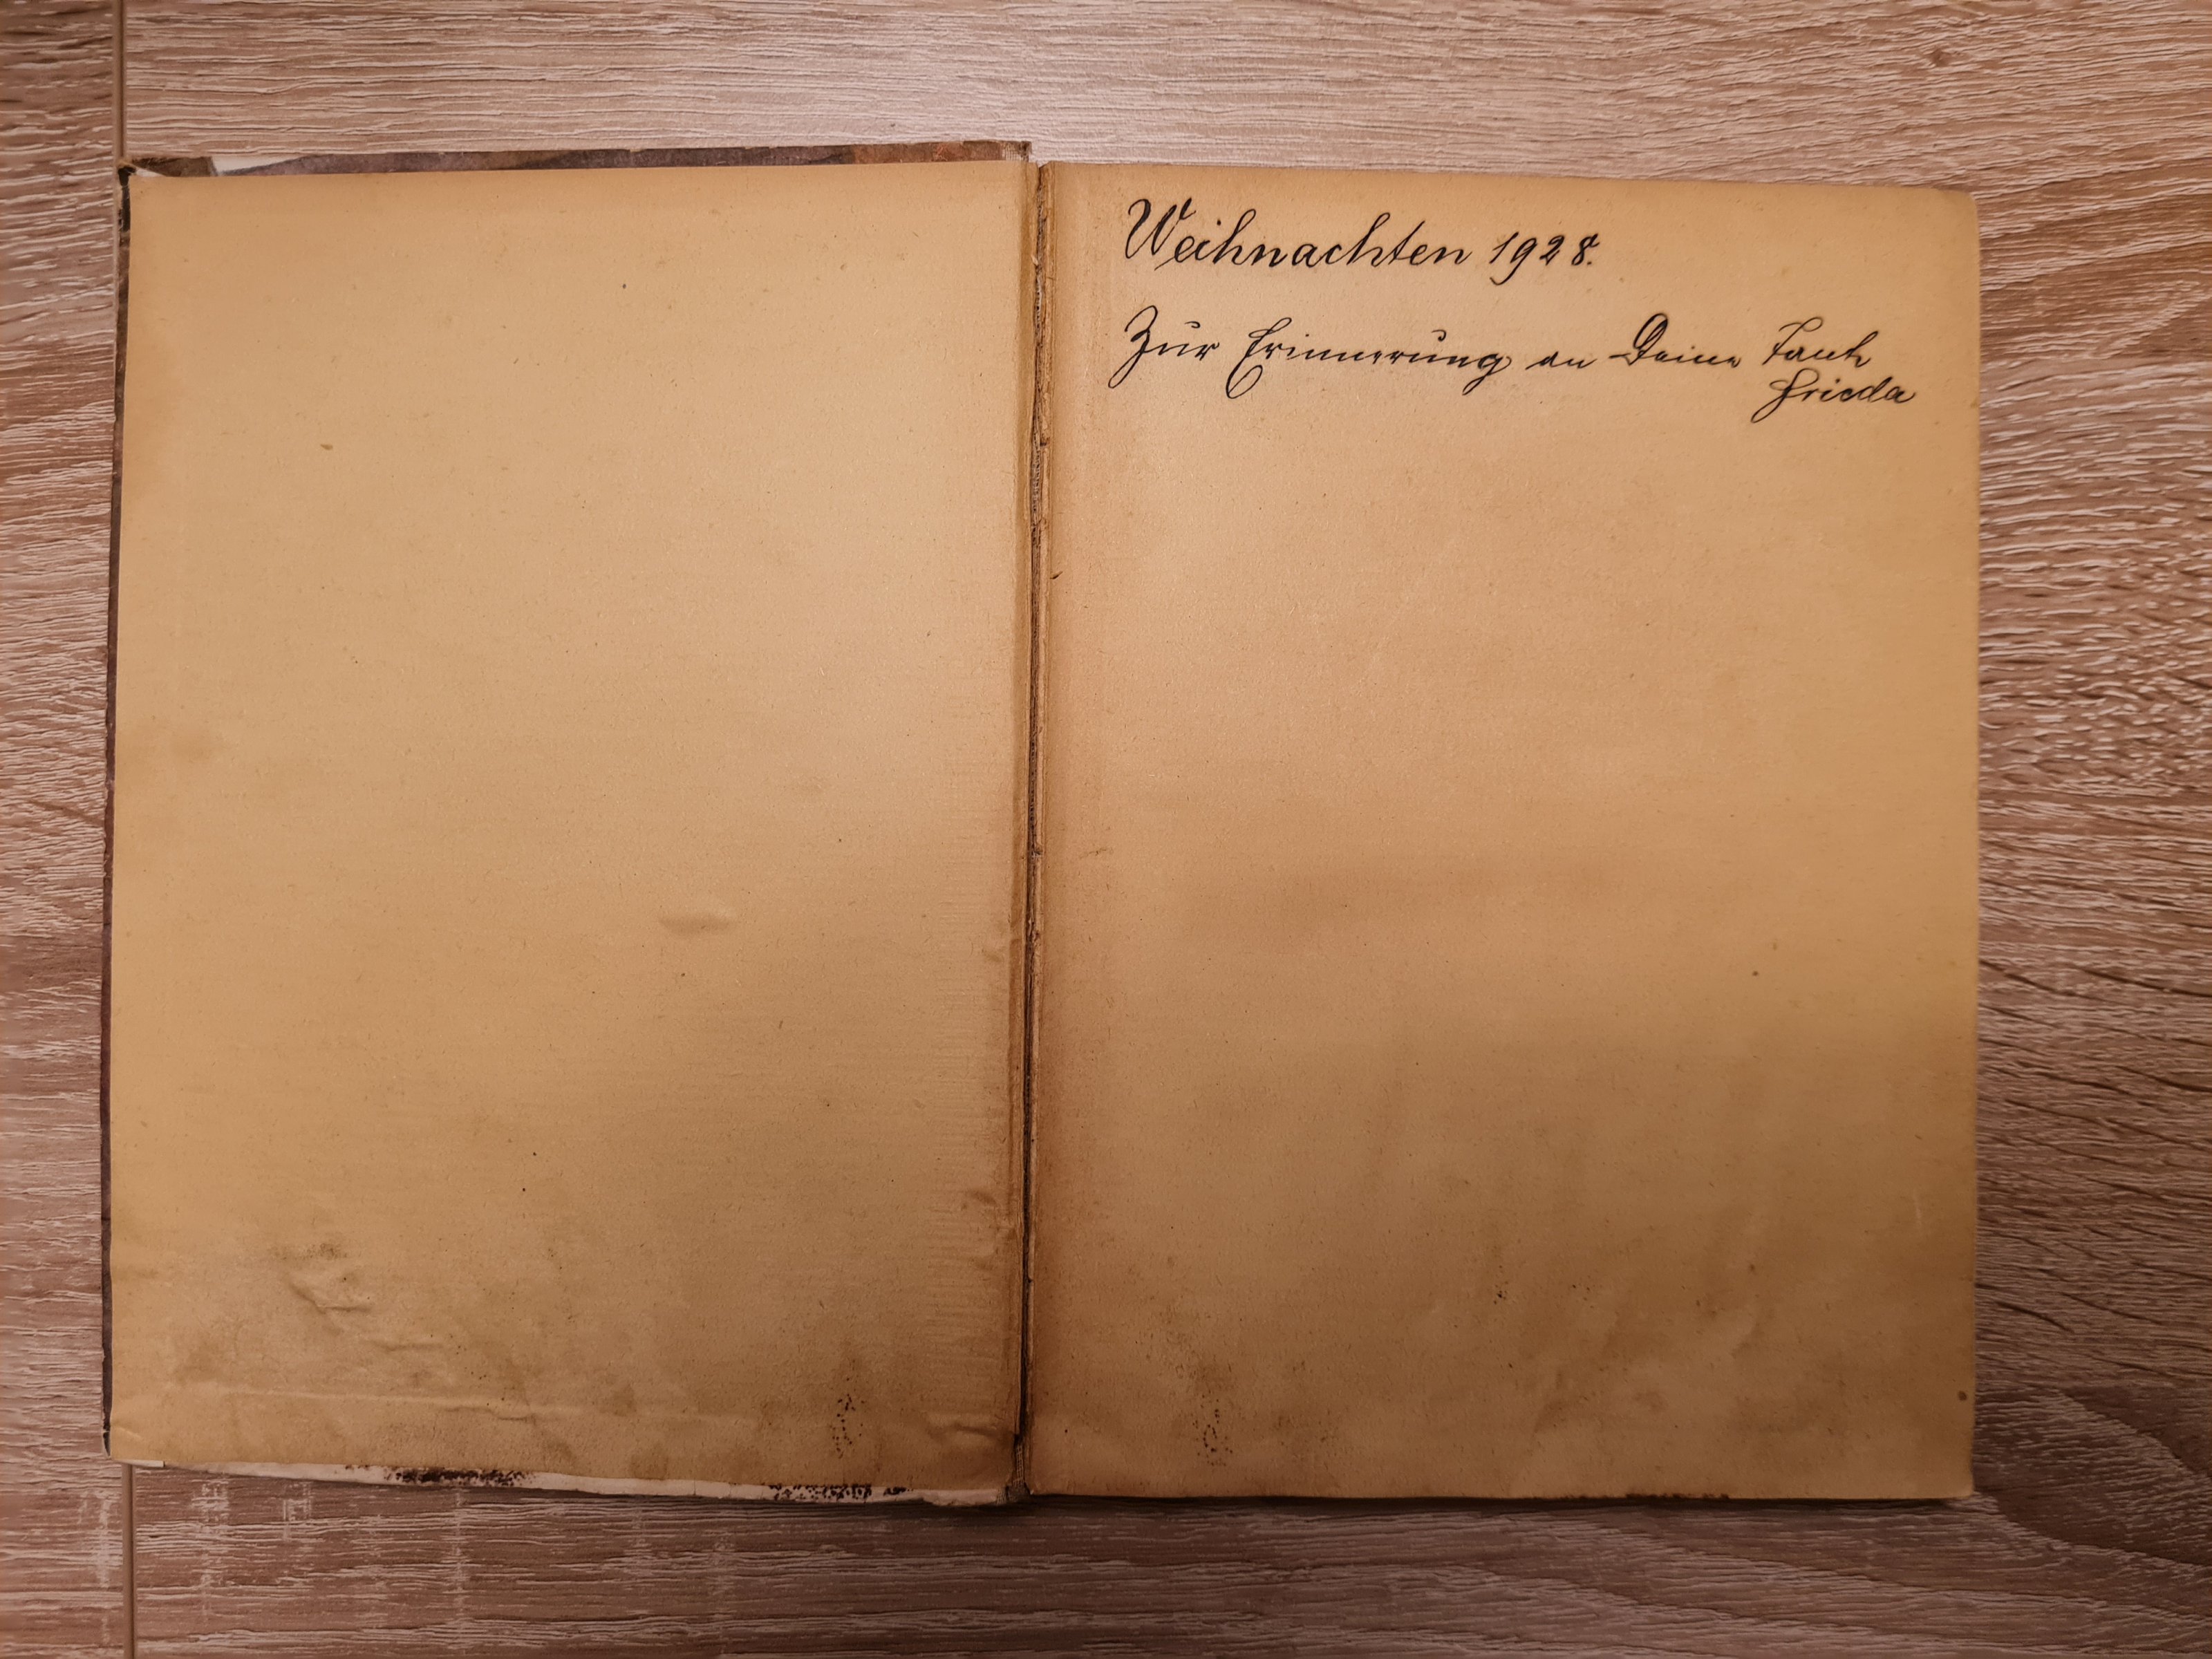 Weihnachten 1928.
Zur Erinnerung an Deine Tante
Frieda